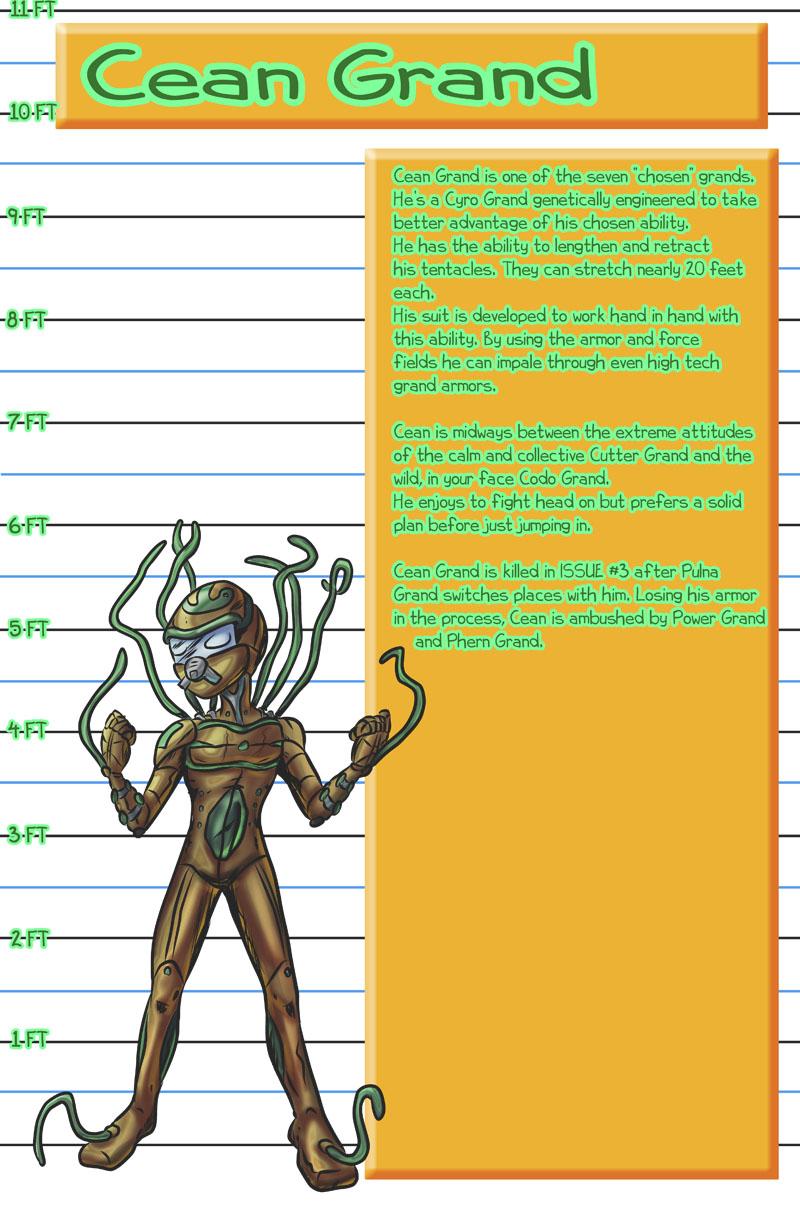 11 FT
Cean Grand
10 FT
Cean Grand is one of the seven "chosen" grands.
He's a Cyro Grand genetically engineered to take
better advantage of his chosen ability.
He has the ability to lengthen and retract
his tentacles. They can stretch nearly 20 feet
each.
His suit is developed to work hand in hand with
this ability. By using the armor and force
fields he can impale through even high tech
grand armors.
Cean is midways between the extreme attitudes
of the calm and collective Cutter Grand and the
wild, in your face Codo Grand.
He enjoys to fight head on but prefers a solid
plan before just jumping in.
Cean Grand is killed in ISSUE #3 after Pulna
Grand switches places with him. Losing his armor
in the process, Cean is ambushed by Power Grand
and Phern Grand.
9 FT
8 FT
7 FT
6 FT
5 FT
4 FT
3 FT
2 FT
1 FT